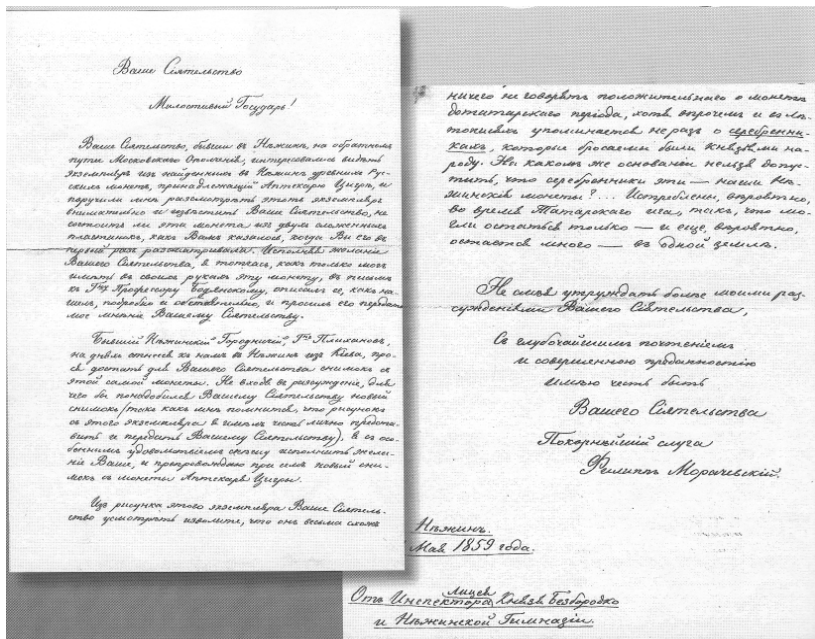 Ваше Сіятельство
Милостивый Государь!
Ваше Сіятельство, бывши въ Нѣжинѣ, на обратномъ
пути Московскаго Ополченія, интересовались видѣть
экземпляръ изъ найденныхъ въ Нѣжинѣ древнихъ Рус-
скихъ монетъ, принадлежащій Аптекарю Цигры, и
поручили мнѣ разсмотрѣть этотъ экземпляръ
внимательно и извѣстить Ваше Сіятельство, не
состоитъ ли эта монета изъ двухъ сложенныхъ
пластинокъ, какъ Вамъ казалось, когда Вы его въ
первый разъ разсматривали. Исполняя желаніе
Вашего Сіятельства, я тотчасъ, какъ только могъ
имѣть въ своихъ рукахъ эту монету, въ письмѣ
къ Гну Профессору Бодянскому, описалъ ее, какъ на-
шелъ, подробно и обстоятельно, и просилъ его передать
мое мнѣніе Вашему Сіятельству.
Бывшій Нѣжинскій Городничій, Гнъ Плихановъ,
на дняхъ отнесся ко мнѣ въ Нѣжинъ изъ Кіева, про-
ся достать для Вашего Сіятельства снимокъ съ
этой самой монеты. Не входя въ разсужденіе, для
чего бы понадобился Вашему Сіятельству новый
снимокъ (такъ какъ мнѣ помнится, что рисунокъ
съ этого экземпляра я имѣлъ честь лично предста-
вить и передать Вашему Сіятельству), я съ осо-
беннымъ удовольствіемъ спѣшу исполнить жела-
ніе Ваше, и препровождаю при семъ новый сни-
мокъ съ монеты Аптекаря Цигры.
Изъ рисунка этого экземпляра Ваше Сіятель-
ство усмотрѣть изволите, что онъ весьма схожъ
ничего не говорятъ положительнаго о монетѣ
дотатарскаго періода, хотя впрочемъ и въ лѣ-
тописяхъ упоминается не разъ о серебренни-
кахъ, которые бросаемы были князьями на-
роду. На какомъ же основаніи нельзя допус-
тить, что серебренники эти — наши Нѣ-
жинскія монеты?... Истреблены, вѣроятно,
во время Татарскаго ига, такъ, что мо-
гли остаться только — и еще, вѣроятно,
остается много — въ одной землѣ.
Не смѣя утруждать болѣе моими раз-
сужденіями Вашего Сіятельства,
Съ глубочайшимъ почтеніемъ
и совершенною преданностію
имѣю честь быть
Вашего Сіятельства
Покорнѣйшій слуга
Филиппъ Морачевскій.
Нѣжинъ.
Мая 1859 года.
Отъ Инспектора Лицея Князя Безбородко
и Нѣжинской Гимназіи.